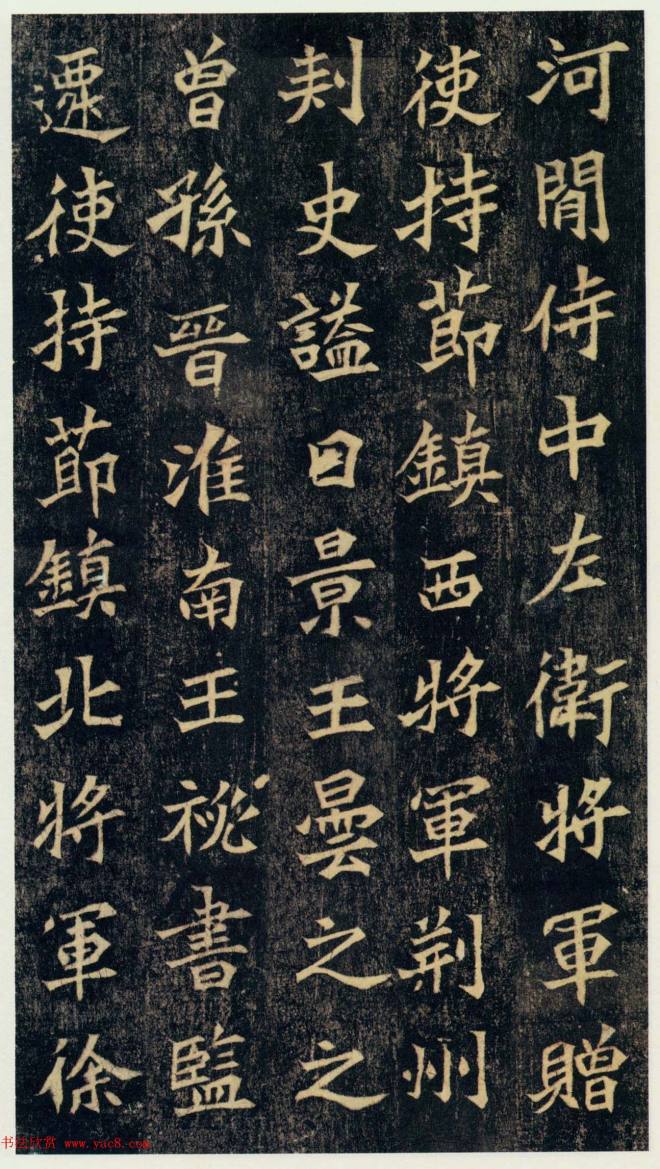 河間侍中左衛將軍贈
使持節鎮西將軍荊州
刺史謚曰景王曇之之
曾孫晉淮南王祕書監
遷使持節鎮北將軍徐
书法欣赏 www.yac8.com